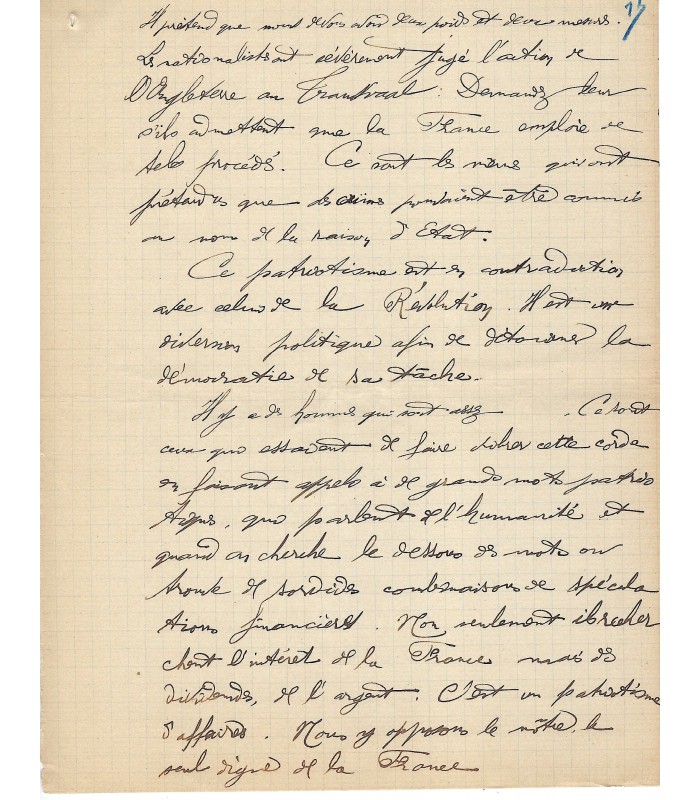 15
Il prétend que nous devons avoir deux poids et deux mesures.
Les nationalistes ont sévèrement jugé l'action de
l'Angleterre au Transvaal. Demandez leur
s'ils admettent que la France emploie de
tels procédés. Ce sont les mêmes qui ont
prétendu que des crimes pouvaient être commis
au nom de la raison d'Etat.
Ce patriotisme est en contradiction
avec celui de la Révolution. Il est une
diversion politique afin de détourner la
démocratie de sa tâche.
Il y a des hommes qui sont assez . Ce sont
ceux qui essaient de faire vibrer cette corde
en faisant appels à de grands mots patrio
tiques, qui parlent de l'humanité et
quand on cherche le dessous des mots on
trouve de sordides combinaisons de spécula
tions financières. Non seulement ils recher
chent l'intérêt de la France mais des
dividendes, de l'argent. C'est un patriotisme
d'affaires. Nous y opposons le nôtre, le
seul digne de la France